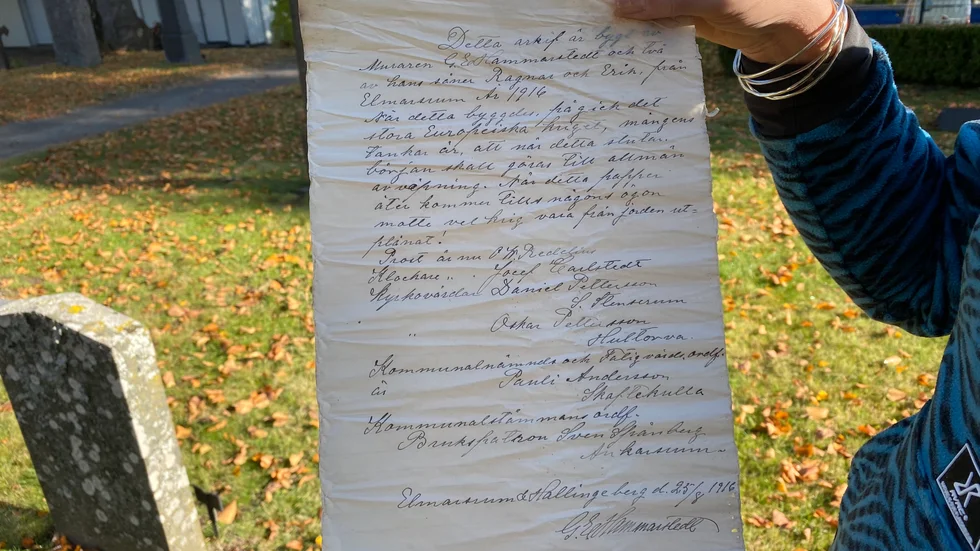 Detta arkif är bygt av
Muraren G. E. Hammarstedt och två
av hans söner Ragnar och Erik, från
Elmarsrum År 1916
När detta byggdes, pågick det
stora Europeiska kriget, mångens
tankar är, att när detta slutar
början skall göras till allmän
avväpning. När detta papper
åter kommer till någons ögon
måtte vel krig vara från jorden ut=
plånat!
Prost är nu
Klockare „ Josef Carlstedt
Kyrkovärdar Daniel Pettersson
S. Slensrum
„ „ Oskar Pettersson
Hultorva.
Kommunalnämnds och Fatigvårds ordf.
är Pauli Andersson
Skaftekulla
Kommunalstämmans ordf.
Brukspatron Sven Spånberg
Ankarsrum
Elmarsrum & Hallingeberg d. 25/8 1916
G. E. Hammarstedt